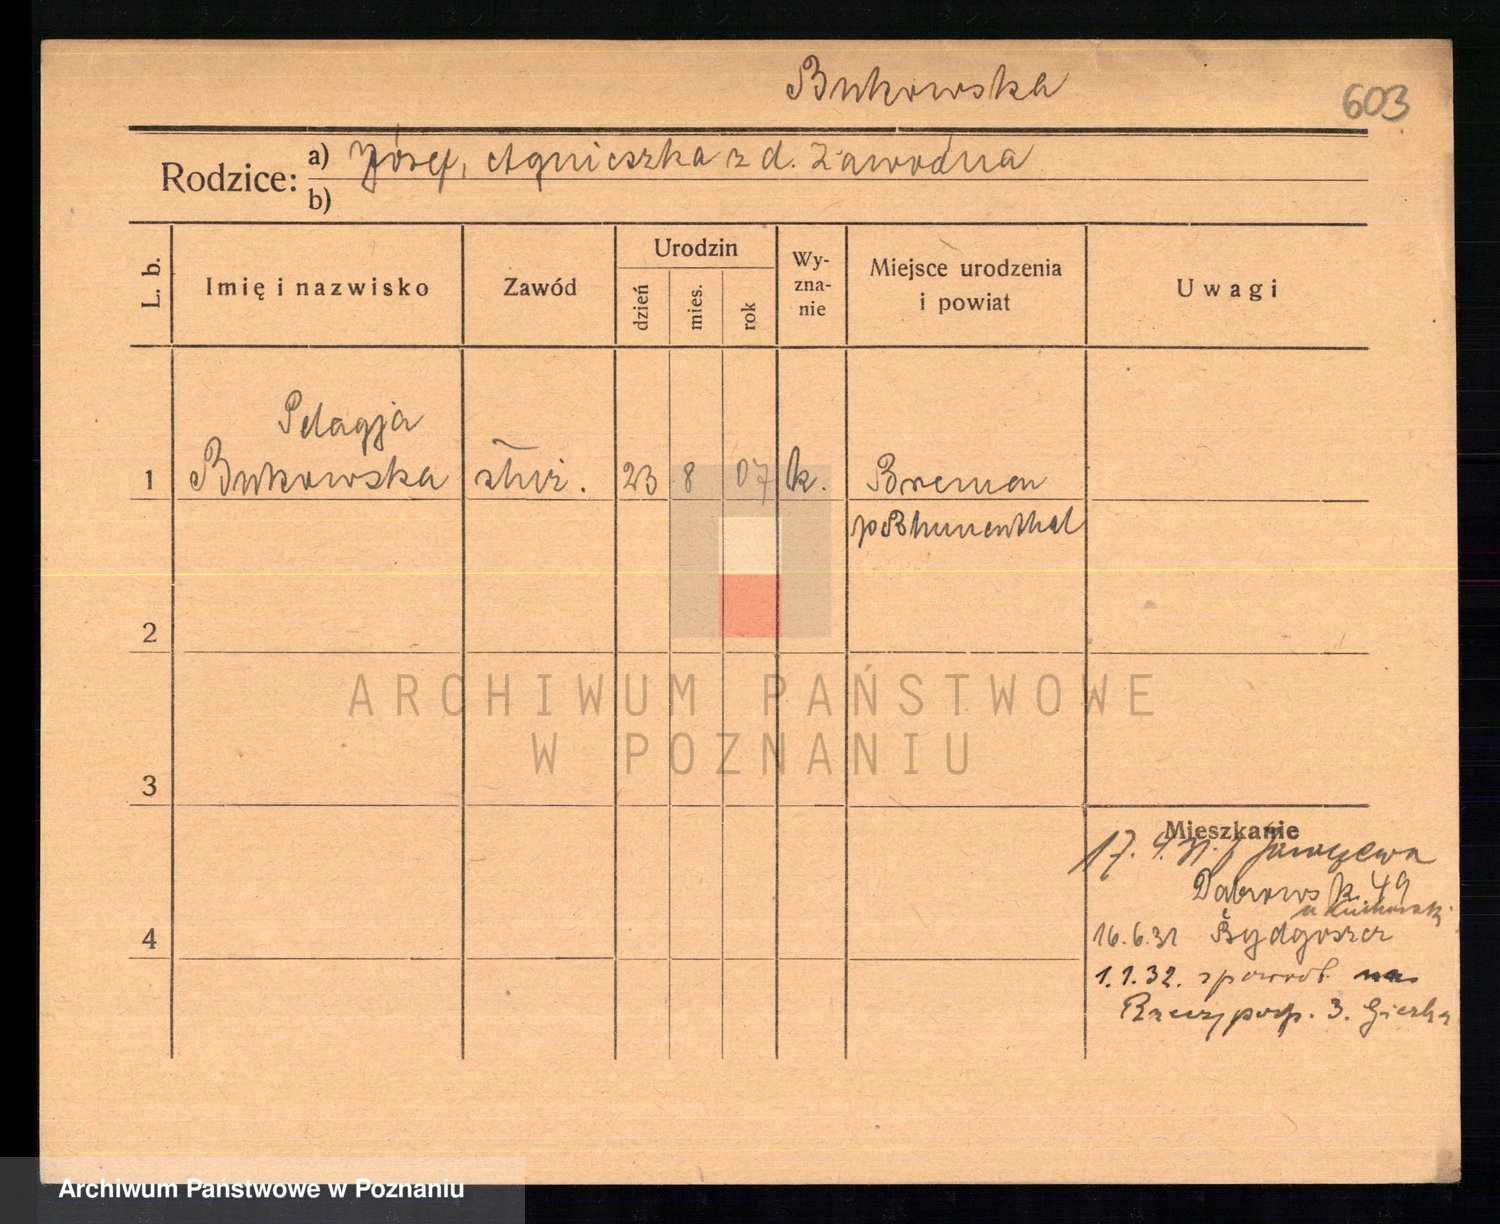 Bukowska
603
Rodzice:
a) Józef, Agnieszka z d. Zawodna
b)
L. b.
Imię i nazwisko
Zawód
Urodzin
dzień
mies.
rok
Wy-
zna-
nie
Miejsce urodzenia
i powiat
Uwagi
Pelagja
1 Bukowska służ. 23 8 07 k. Bremen
p Blumenthal
2
3
4
ARCHIWUM PAŃSTWOWE
W POZNANIU
Mieszkanie
17. 4. 31. Jaroczewa
Dabrows k. 49
16.6.31 Bydgoszcz
1.1.32. spowrot na
Rzeczyposp. 3. Gierka
Archiwum Państwowe w Poznaniu